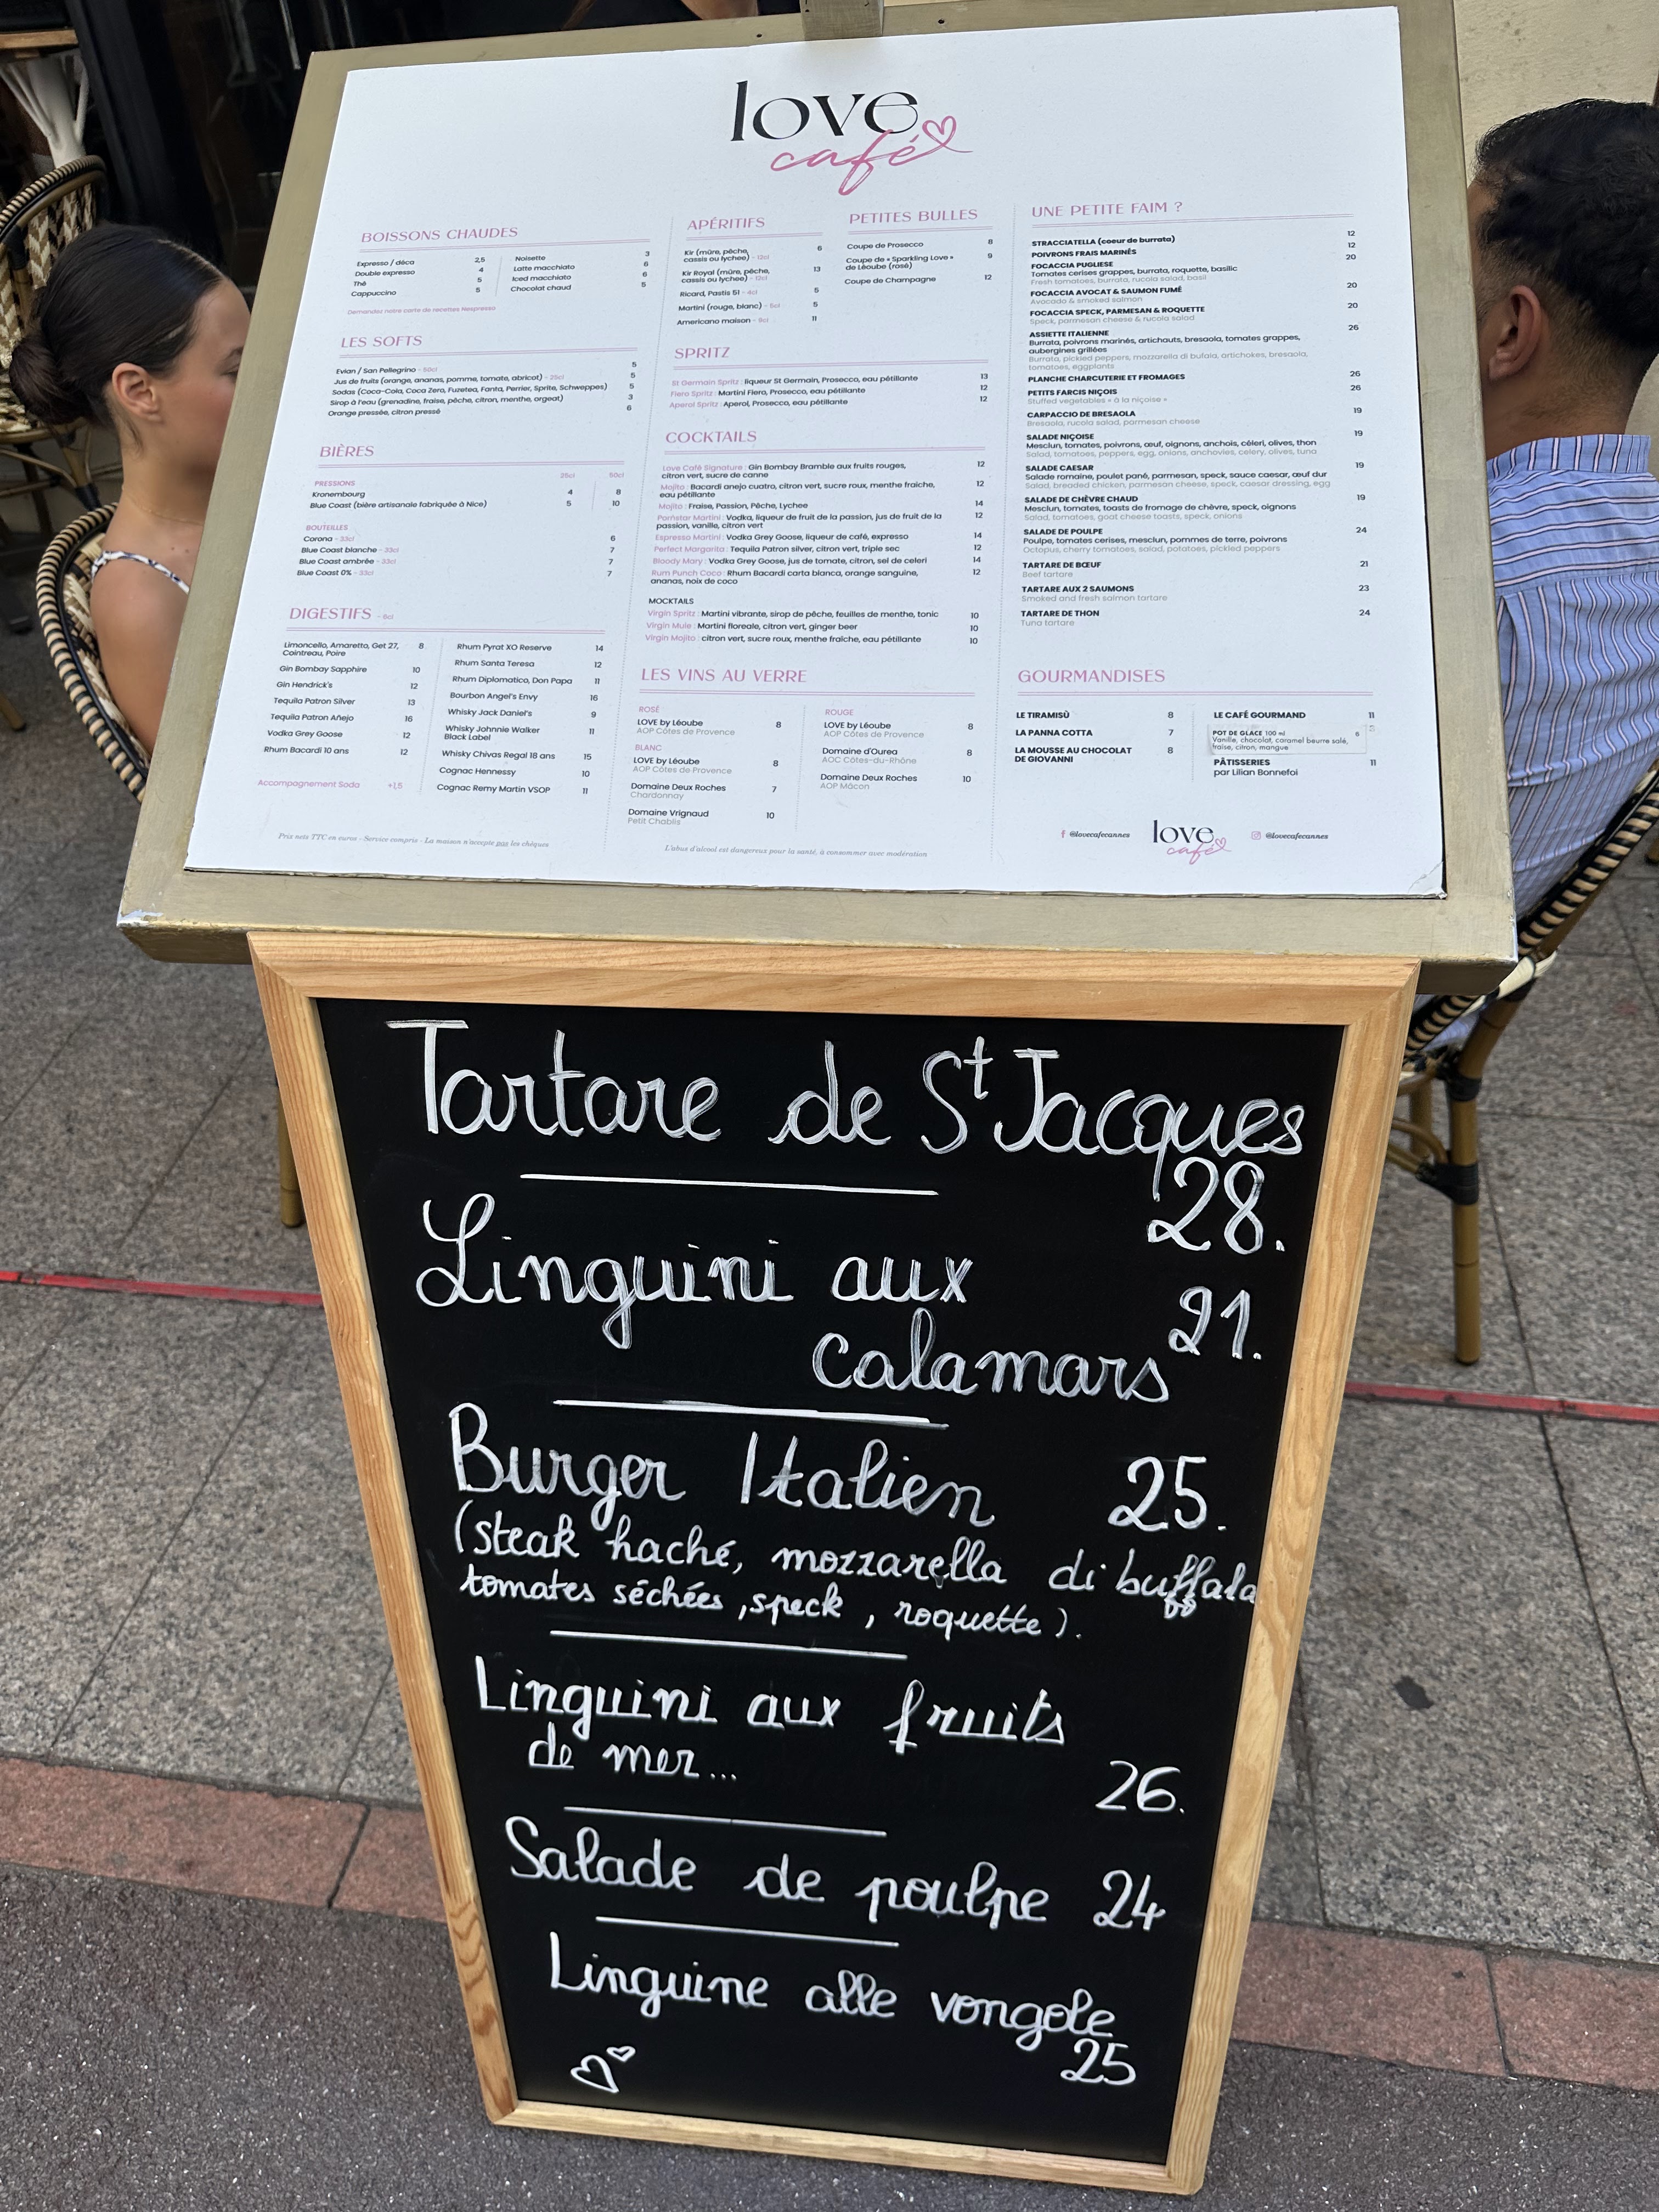 love
café
BOISSONS CHAUDES
Expresso / déca 2,5
Double expresso 4
Thé 5
Cappuccino 5
Noisette 3
Latte macchiato 6
Iced macchiato 6
Chocolat chaud 5
Demandez notre carte de recettes Nespresso
LES SOFTS
Evian / San Pellegrino - 50cl 5
Jus de fruits (orange, ananas, pomme, tomate, abricot) - 25cl 5
Sodas (Coca-Cola, Coca Zero, Fuzetea, Fanta, Perrier, Sprite, Schweppes) 5
Sirop à l'eau (grenadine, fraise, pêche, citron, menthe, orgeat) 3
Orange pressée, citron pressé 6
BIÈRES
PRESSIONS 25cl 50cl
Kronembourg 4 8
Blue Coast (bière artisanale fabriquée à Nice) 5 10
BOUTEILLES
Corona - 33cl 6
Blue Coast blanche - 33cl 7
Blue Coast ambrée - 33cl 7
Blue Coast 0% - 33cl 7
DIGESTIFS - 6cl
Limoncello, Amaretto, Get 27, 8
Cointreau, Poire
Gin Bombay Sapphire 10
Gin Hendrick's 12
Tequila Patron Silver 13
Tequila Patron Añejo 16
Vodka Grey Goose 12
Rhum Bacardi 10 ans 12
Accompagnement Soda +1,5
Rhum Pyrat XO Reserve 14
Rhum Santa Teresa 12
Rhum Diplomatico, Don Papa 11
Bourbon Angel's Envy 16
Whisky Jack Daniel's 9
Whisky Johnnie Walker 11
Black Label
Whisky Chivas Regal 18 ans 15
Cognac Hennessy 10
Cognac Remy Martin VSOP 11
Prix nets TTC en euros - Service compris - La maison n'accepte pas les chèques
APÉRITIFS
Kir (mûre, pêche, 6
cassis ou lychee) - 12cl
Kir Royal (mûre, pêche, 13
cassis ou lychee) - 12cl
Ricard, Pastis 51 - 4cl 5
Martini (rouge, blanc) - 6cl 5
Americano maison - 9cl 11
PETITES BULLES
Coupe de Prosecco 8
Coupe de « Sparkling Love » 9
de Léoube (rosé)
Coupe de Champagne 12
SPRITZ
St Germain Spritz : liqueur St Germain, Prosecco, eau pétillante 13
Fiero Spritz : Martini Fiero, Prosecco, eau pétillante 12
Aperol Spritz : Aperol, Prosecco, eau pétillante 12
COCKTAILS
Love Café Signature : Gin Bombay Bramble aux fruits rouges, 12
citron vert, sucre de canne
Mojito : Bacardi anejo cuatro, citron vert, sucre roux, menthe fraîche, 12
eau pétillante
Mojito : Fraise, Passion, Pêche, Lychee 14
Pornstar Martini : Vodka, liqueur de fruit de la passion, jus de fruit de la 12
passion, vanille, citron vert
Espresso Martini : Vodka Grey Goose, liqueur de café, expresso 14
Perfect Margarita : Tequila Patron silver, citron vert, triple sec 12
Bloody Mary : Vodka Grey Goose, jus de tomate, citron, sel de celeri 14
Rum Punch Coco : Rhum Bacardi carta blanca, orange sanguine, 12
ananas, noix de coco
MOCKTAILS
Virgin Spritz : Martini vibrante, sirop de pêche, feuilles de menthe, tonic 10
Virgin Mule : Martini floreale, citron vert, ginger beer 10
Virgin Mojito : citron vert, sucre roux, menthe fraîche, eau pétillante 10
LES VINS AU VERRE
ROSÉ
LOVE by Léoube 8
AOP Côtes de Provence
BLANC
LOVE by Léoube 8
AOP Côtes de Provence
Domaine Deux Roches 7
Chardonnay
Domaine Vrignaud 10
Petit Chablis
ROUGE
LOVE by Léoube 8
AOP Côtes de Provence
Domaine d'Ourea 8
AOC Côtes-du-Rhône
Domaine Deux Roches 10
AOP Mâcon
L'abus d'alcool est dangereux pour la santé, à consommer avec modération
UNE PETITE FAIM ?
STRACCIATELLA (coeur de burrata) 12
POIVRONS FRAIS MARINÉS 12
FOCACCIA PUGLIESE 20
Tomates cerises grappes, burrata, roquette, basilic
Fresh tomatoes, burrata, rucola salad, basil
FOCACCIA AVOCAT & SAUMON FUMÉ 20
Avocado & smoked salmon
FOCACCIA SPECK, PARMESAN & ROQUETTE 20
Speck, parmesan cheese & rucola salad
ASSIETTE ITALIENNE 26
Burrata, poivrons marinés, artichauts, bresaola, tomates grappes,
aubergines grillées
Burrata, pickled peppers, mozzarella di bufala, artichokes, bresaola,
tomatoes, eggplants
PLANCHE CHARCUTERIE ET FROMAGES 26
PETITS FARCIS NIÇOIS 26
Stuffed vegetables « à la niçoise »
CARPACCIO DE BRESAOLA 19
Bresaola, rucola salad, parmesan cheese
SALADE NIÇOISE 19
Mesclun, tomates, poivrons, œuf, oignons, anchois, céleri, olives, thon
Salad, tomatoes, peppers, egg, onions, anchovies, celery, olives, tuna
SALADE CAESAR 19
Salade romaine, poulet pané, parmesan, speck, sauce caesar, œuf dur
Salad, breaded chicken, parmesan cheese, speck, caesar dressing, egg
SALADE DE CHÈVRE CHAUD 19
Mesclun, tomates, toasts de fromage de chèvre, speck, oignons
Salad, tomatoes, goat cheese toasts, speck, onions
SALADE DE POULPE 24
Poulpe, tomates cerises, mesclun, pommes de terre, poivrons
Octopus, cherry tomatoes, salad, potatoes, pickled peppers
TARTARE DE BŒUF 21
Beef tartare
TARTARE AUX 2 SAUMONS 23
Smoked and fresh salmon tartare
TARTARE DE THON 24
Tuna tartare
GOURMANDISES
LE TIRAMISÙ 8
LA PANNA COTTA 7
LA MOUSSE AU CHOCOLAT 8
DE GIOVANNI
LE CAFÉ GOURMAND 11
POT DE GLACE 100 ml 6
Vanille, chocolat, caramel beurre salé,
fraise, citron, mangue
PÂTISSERIES 11
par Lilian Bonnefoi
@lovecafecannes
love
café
@lovecafecannes
Tartare de St Jacques
28.
Linguini aux
calamars 21.
Burger Italien 25.
(steak haché, mozzarella di buffala
tomates séchées, speck, roquette).
Linguini aux fruits
de mer... 26.
Salade de poulpe 24
Linguine alle vongole
25